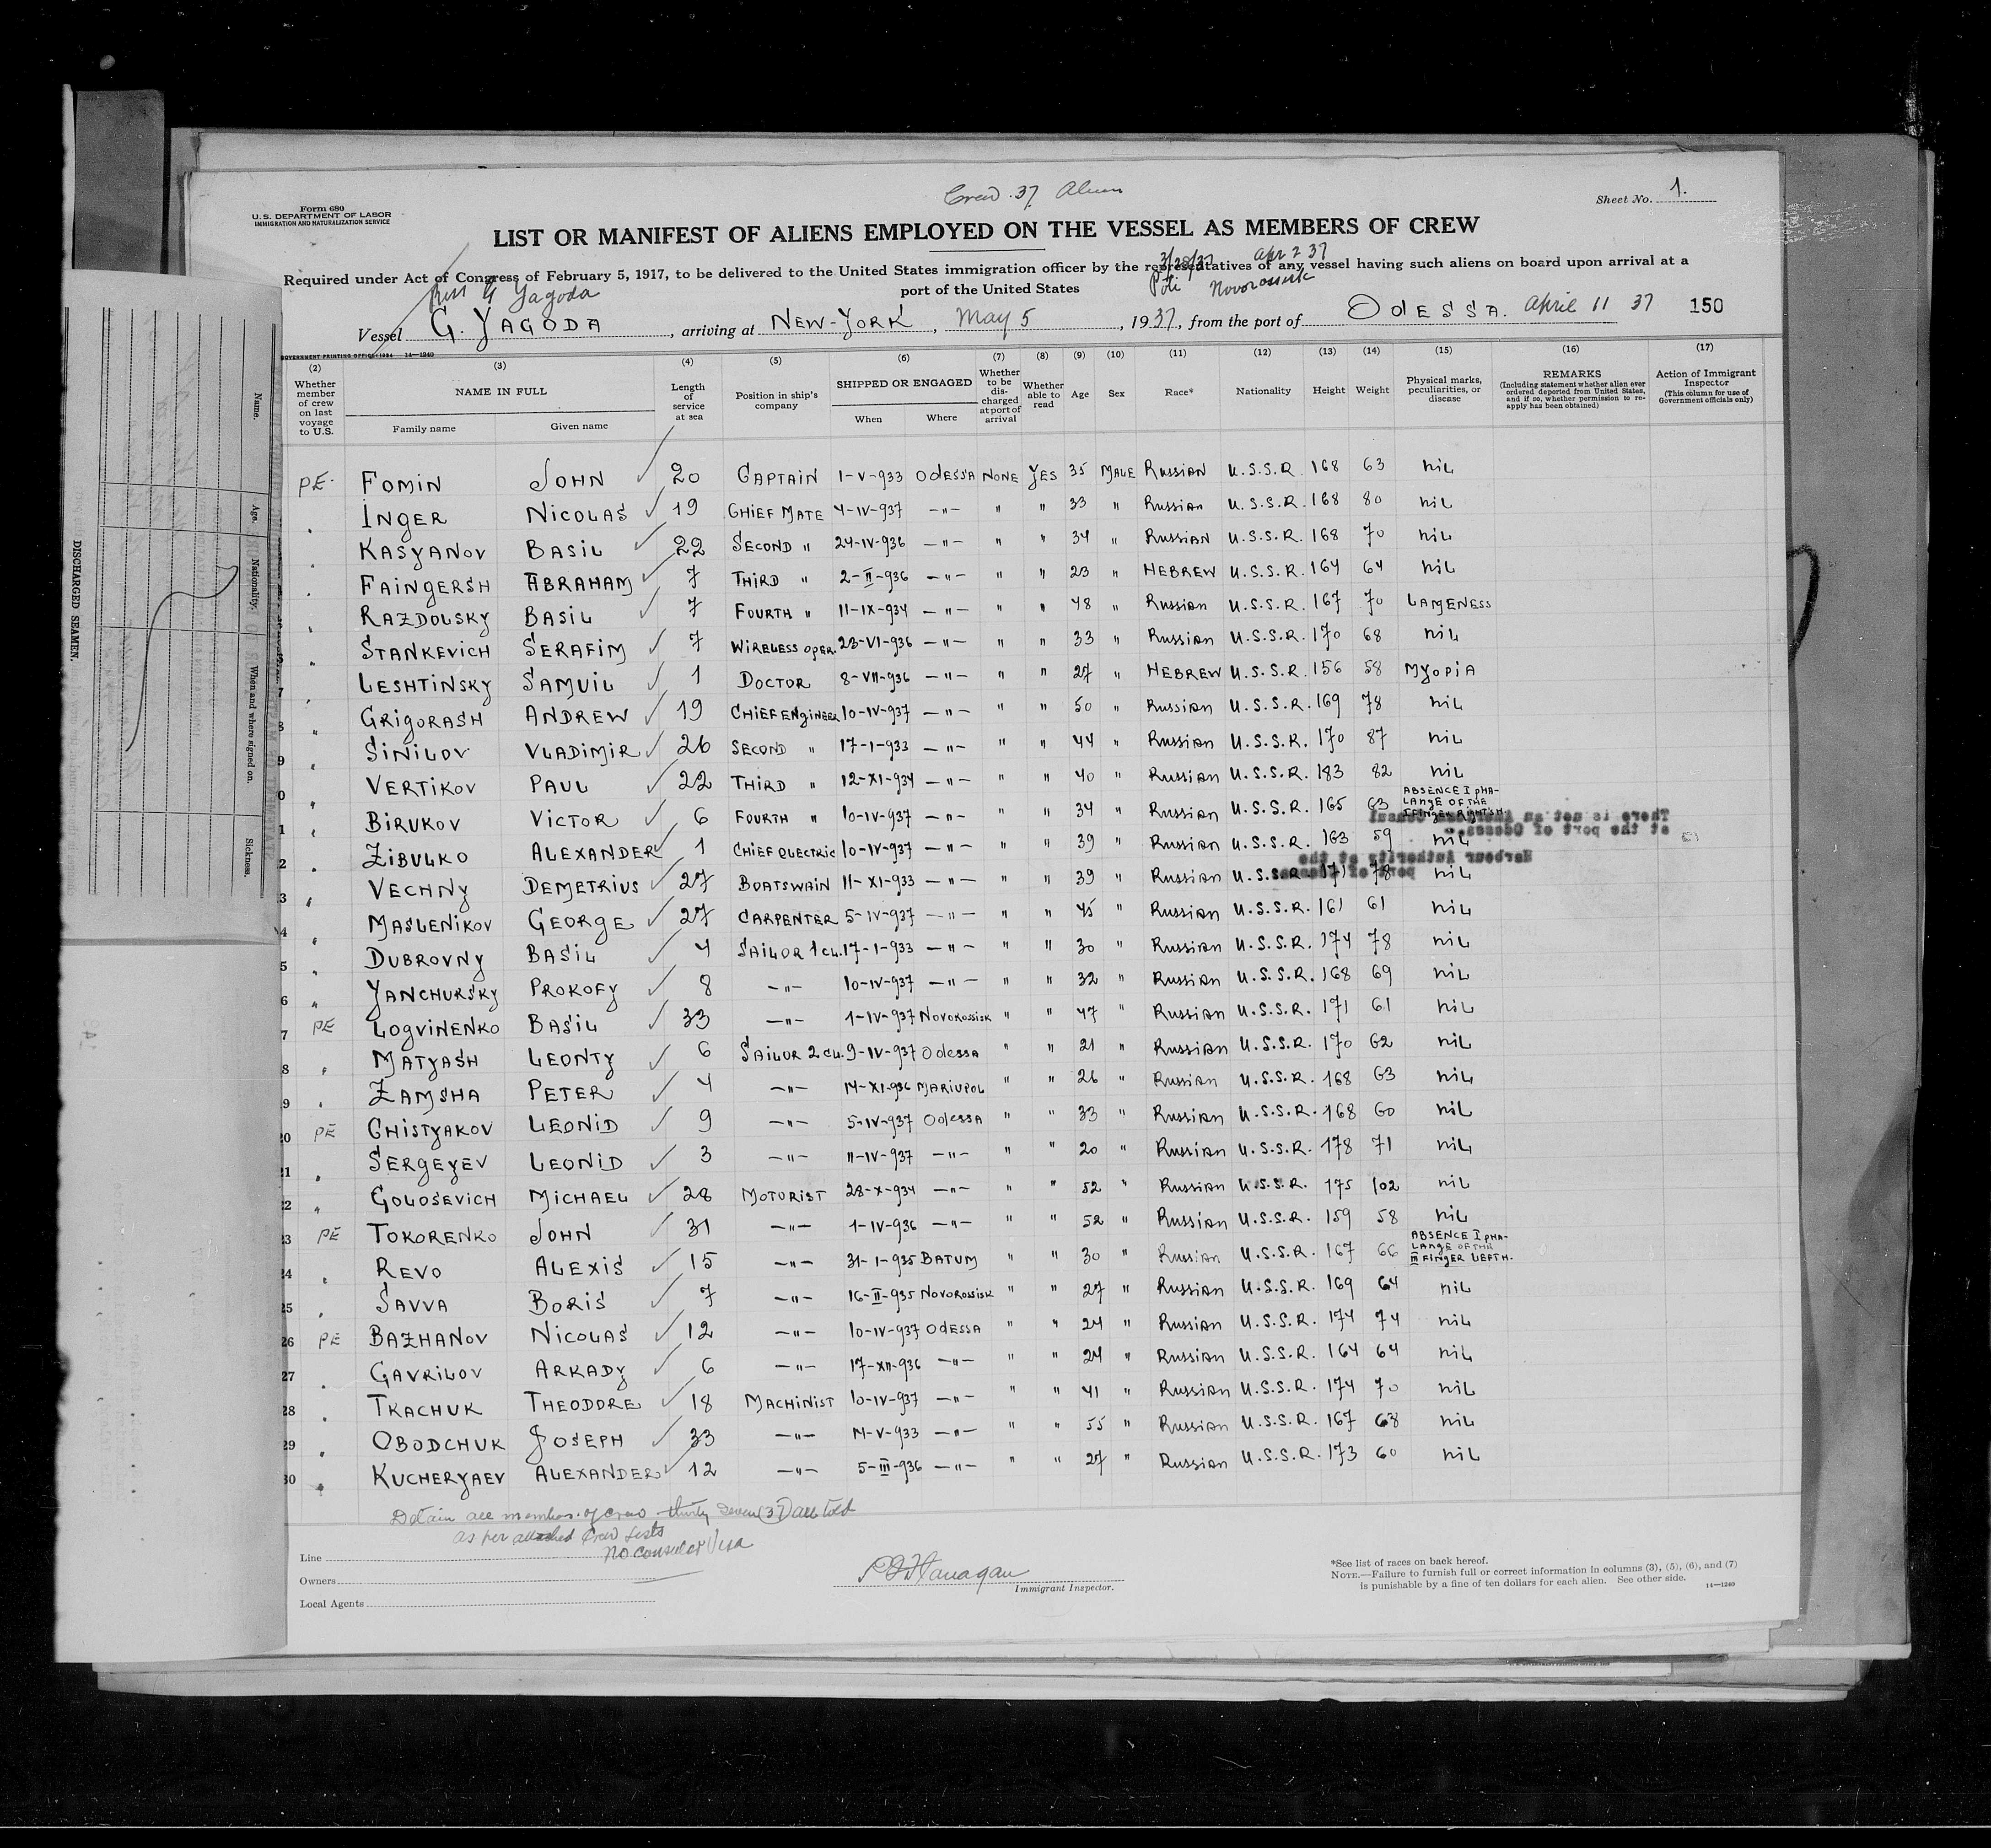 Crew 37 Aliens
Sheet No. 1.
Form 680
U.S. DEPARTMENT OF LABOR
IMMIGRATION AND NATURALIZATION SERVICE
LIST OR MANIFEST OF ALIENS EMPLOYED ON THE VESSEL AS MEMBERS OF CREW
Required under Act of Congress of February 5, 1917, to be delivered to the United States immigration officer by the representatives of any vessel having such aliens on board upon arrival at a
port of the United States
3/28/37 Apr 2 37
Poti Novorossisk
Russ G Yagoda
Vessel G. YAGODA, arriving at NEW-YORK, May 5, 1937, from the port of ODESSA. April 11 37 150
GOVERNMENT PRINTING OFFICE: 1934 14—1240
(2) (3) (4) (5) (6) (7) (8) (9) (10) (11) (12) (13) (14) (15) (16) (17)
Whether member of crew on last voyage to U.S. NAME IN FULL Family name Given name Length of service at sea Position in ship's company SHIPPED OR ENGAGED When Where Whether to be discharged at port of arrival Whether able to read Age Sex Race* Nationality Height Weight Physical marks, peculiarities, or disease REMARKS (Including statement whether alien ever ordered deported from United States, and if so, whether permission to reapply has been obtained) Action of Immigrant Inspector (This column for use of Government officials only)
PE FOMIN JOHN 20 CAPTAIN 1-V-933 ODESSA NONE YES 35 MALE Russian U.S.S.R. 168 63 nil
" INGER NICOLAS 19 CHIEF MATE 4-IV-937 —"— " " 33 " Russian U.S.S.R. 168 80 nil
" KASYANOV BASIL 22 SECOND " 24-IV-936 —"— " " 34 " Russian U.S.S.R. 168 70 nil
" FAINGERSH ABRAHAM 7 THIRD " 2-II-936 —"— " " 23 " HEBREW U.S.S.R. 164 64 nil
" RAZDOLSKY BASIL 7 FOURTH " 11-IX-934 —"— " " 48 " Russian U.S.S.R. 167 70 LAMENESS
" STANKEVICH SERAFIM 7 WIRELESS OPER. 23-VI-936 —"— " " 33 " Russian U.S.S.R. 170 68 nil
7 " LESHTINSKY SAMUIL 1 DOCTOR 8-VII-936 —"— " " 27 " HEBREW U.S.S.R. 156 58 MYOPIA
8 " GRIGORASH ANDREW 19 CHIEF ENGINEER 10-IV-937 —"— " " 50 " Russian U.S.S.R. 169 78 nil
9 " SINILOV VLADIMIR 26 SECOND " 17-1-933 —"— " " 44 " Russian U.S.S.R. 170 87 nil
0 " VERTIKOV PAUL 22 THIRD " 12-XI-934 —"— " " 40 " Russian U.S.S.R. 183 82 nil
1 " BIRUKOV VICTOR 6 FOURTH " 10-IV-937 —"— " " 34 " Russian U.S.S.R. 165 63 ABSENCE I PHALANGE OF THE I FINGER RIGHT H.
2 " ZIBULKO ALEXANDER 1 CHIEF ELECTRIC 10-IV-937 —"— " " 39 " Russian U.S.S.R. 163 59 nil
3 " VECHNY DEMETRIUS 27 BOATSWAIN 11-XI-933 —"— " " 39 " Russian U.S.S.R. 171 78 nil
4 " MASLENIKOV GEORGE 27 CARPENTER 5-IV-937 —"— " " 45 " Russian U.S.S.R. 161 61 nil
5 " DUBROVNY BASIL 4 SAILOR 1 CL. 17-1-933 —"— " " 30 " Russian U.S.S.R. 174 78 nil
6 " YANCHURSKY PROKOFY 8 —"— 10-IV-937 —"— " " 32 " Russian U.S.S.R. 168 69 nil
7 PE LOGVINENKO BASIL 33 —"— 1-IV-937 NOVOROSSISK " " 47 " Russian U.S.S.R. 171 61 nil
8 " MATYASH LEONTY 6 SAILOR 2 CL. 9-IV-937 ODESSA " " 21 " Russian U.S.S.R. 170 62 nil
9 " ZAMSHA PETER 4 —"— 14-XI-936 MARIUPOL " " 26 " Russian U.S.S.R. 168 63 nil
20 PE CHISTYAKOV LEONID 9 —"— 5-IV-937 ODESSA " " 33 " Russian U.S.S.R. 168 60 nil
21 " SERGEYEV LEONID 3 —"— 11-IV-937 —"— " " 20 " Russian U.S.S.R. 178 71 nil
22 " GOLOSEVICH MICHAEL 28 MOTORIST 28-X-934 —"— " " 52 " Russian U.S.S.R. 175 102 nil
23 PE TOKORENKO JOHN 31 —"— 1-IV-936 —"— " " 52 " Russian U.S.S.R. 159 58 nil
24 " REVO ALEXIS 15 —"— 31-1-935 BATUM " " 30 " Russian U.S.S.R. 167 66 ABSENCE I PHALANGE OF THE III FINGER LEFT H.
25 " SAVVA BORIS 7 —"— 16-II-935 NOVOROSSISK " " 27 " Russian U.S.S.R. 169 64 nil
26 PE BAZHANOV NICOLAS 12 —"— 10-IV-937 ODESSA " " 24 " Russian U.S.S.R. 174 74 nil
27 " GAVRILOV ARKADY 6 —"— 17-XII-936 —"— " " 24 " Russian U.S.S.R. 164 64 nil
28 " TKACHUK THEODORE 18 MACHINIST 10-IV-937 —"— " " 41 " Russian U.S.S.R. 174 70 nil
29 " OBODCHUK JOSEPH 33 —"— 14-V-933 —"— " " 55 " Russian U.S.S.R. 167 68 nil
30 " KUCHERYAEV ALEXANDER 12 —"— 5-III-936 —"— " " 27 " Russian U.S.S.R. 173 60 nil
There is not an American Consul
at the port of Odessa.
Harbour Authority at the
port of Odessa
Detain all members of crew thirty seven (37) all told
as per attached Crew Lists
no consular Visa
Line
Owners
Local Agents
Flanagan
Immigrant Inspector.
*See list of races on back hereof.
NOTE.—Failure to furnish full or correct information in columns (3), (5), (6), and (7)
is punishable by a fine of ten dollars for each alien. See other side. 14—1240
DISCHARGED SEAMEN.
Name.
Age.
Nationality.
When and where signed on.
Sickness.